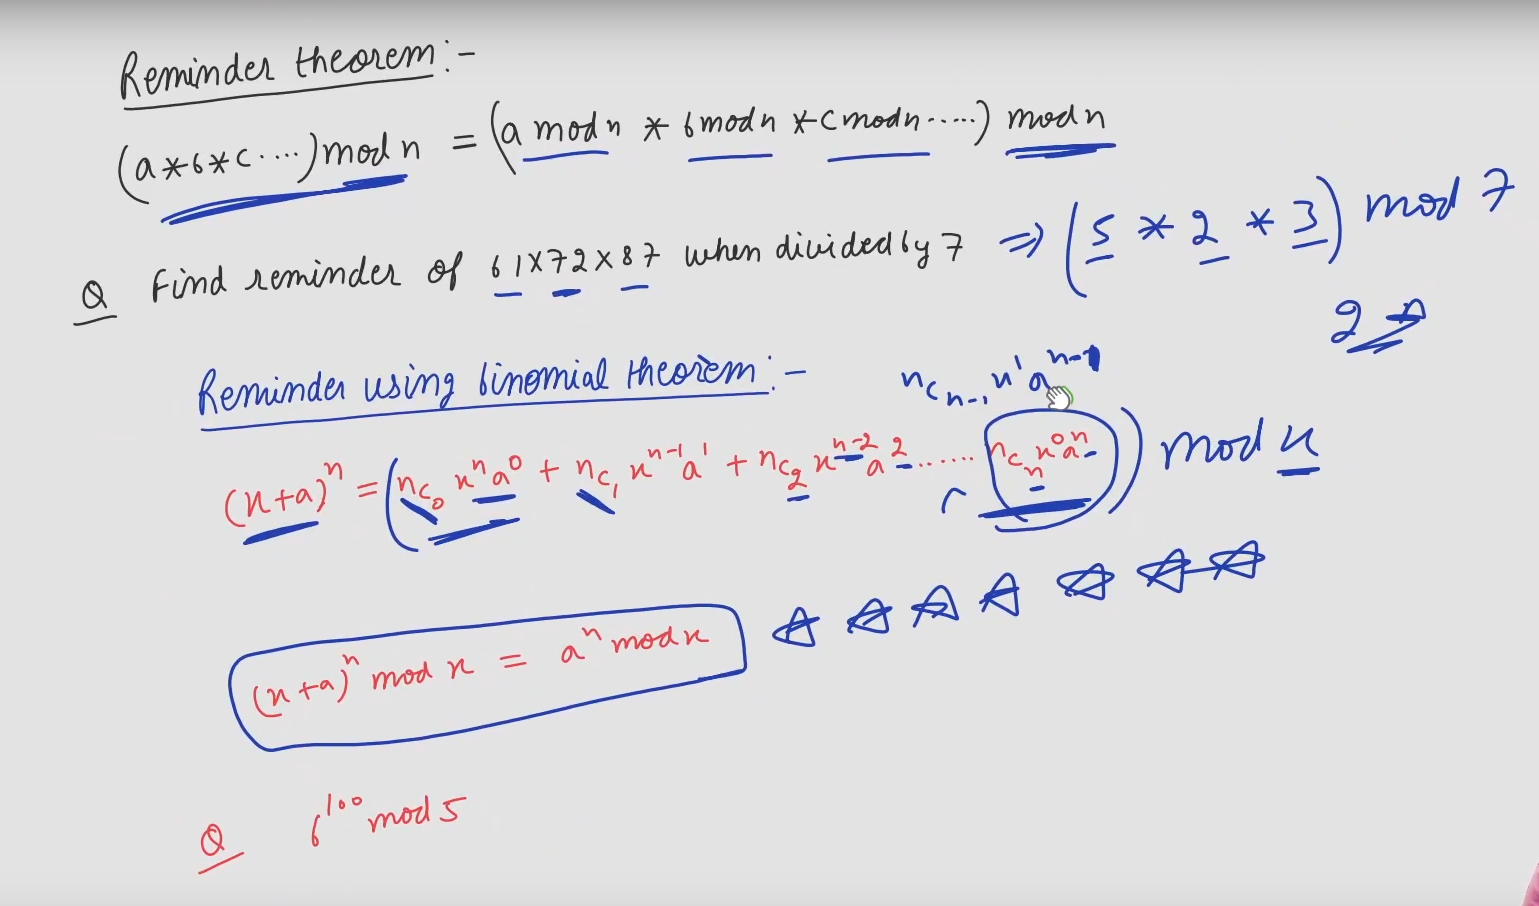 Reminder theorem :-
(a*b*c....) mod n = (a mod n * b mod n * c mod n .....) mod n
Q Find reminder of 61×72×87 when divided by 7 ⇒ (5 * 2 * 3) mod 7
2
Reminder using binomial theorem :-
nCn-1 x¹ aⁿ⁻¹
(x+a)ⁿ = (nC₀ xⁿa⁰ + nC₁ xⁿ⁻¹a¹ + nC₂ xⁿ⁻²a² ...... nCn x⁰aⁿ) mod x
(x+a)ⁿ mod x = aⁿ mod x
Q 6¹⁰⁰ mod 5